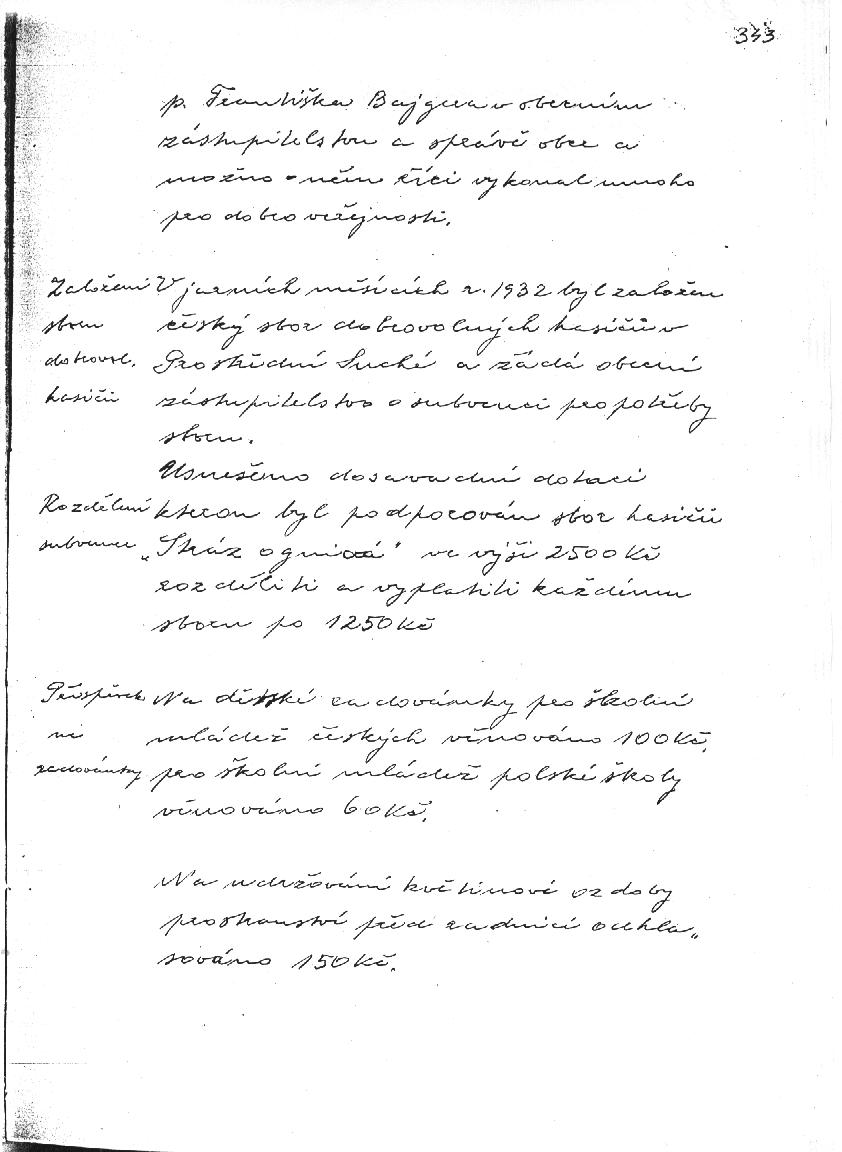 333
p. Františka Bajgera v obecním
zástupitelstvu a správě obce a
možno o něm říci vykonal mnoho
pro dobro veřejnosti.
Založení
sboru
dobrovol.
hasičů
V jarních měsících r. 1932 byl založen
český sbor dobrovolných hasičů v
Prostřední Suché a žádá obecní
zástupitelstvo o subvenci pro potřeby
sboru.
Usnešeno dosavadní dotaci
Rozdělení
subvence
kterou byl podporován sbor hasičů
„Stráž ogniowá" ve výši 2500 Kč
rozděliti a vyplatiti každému
sboru po 1250 Kč
Příspěvek
na
radovánky
Na dětské radovánky pro školní
mládež českých věnováno 100 Kč,
pro školní mládež polské školy
věnováno 60 Kč.
Na udržování květinové ozdoby
prostranství před radnicí odhla„
sováno 150 Kč.